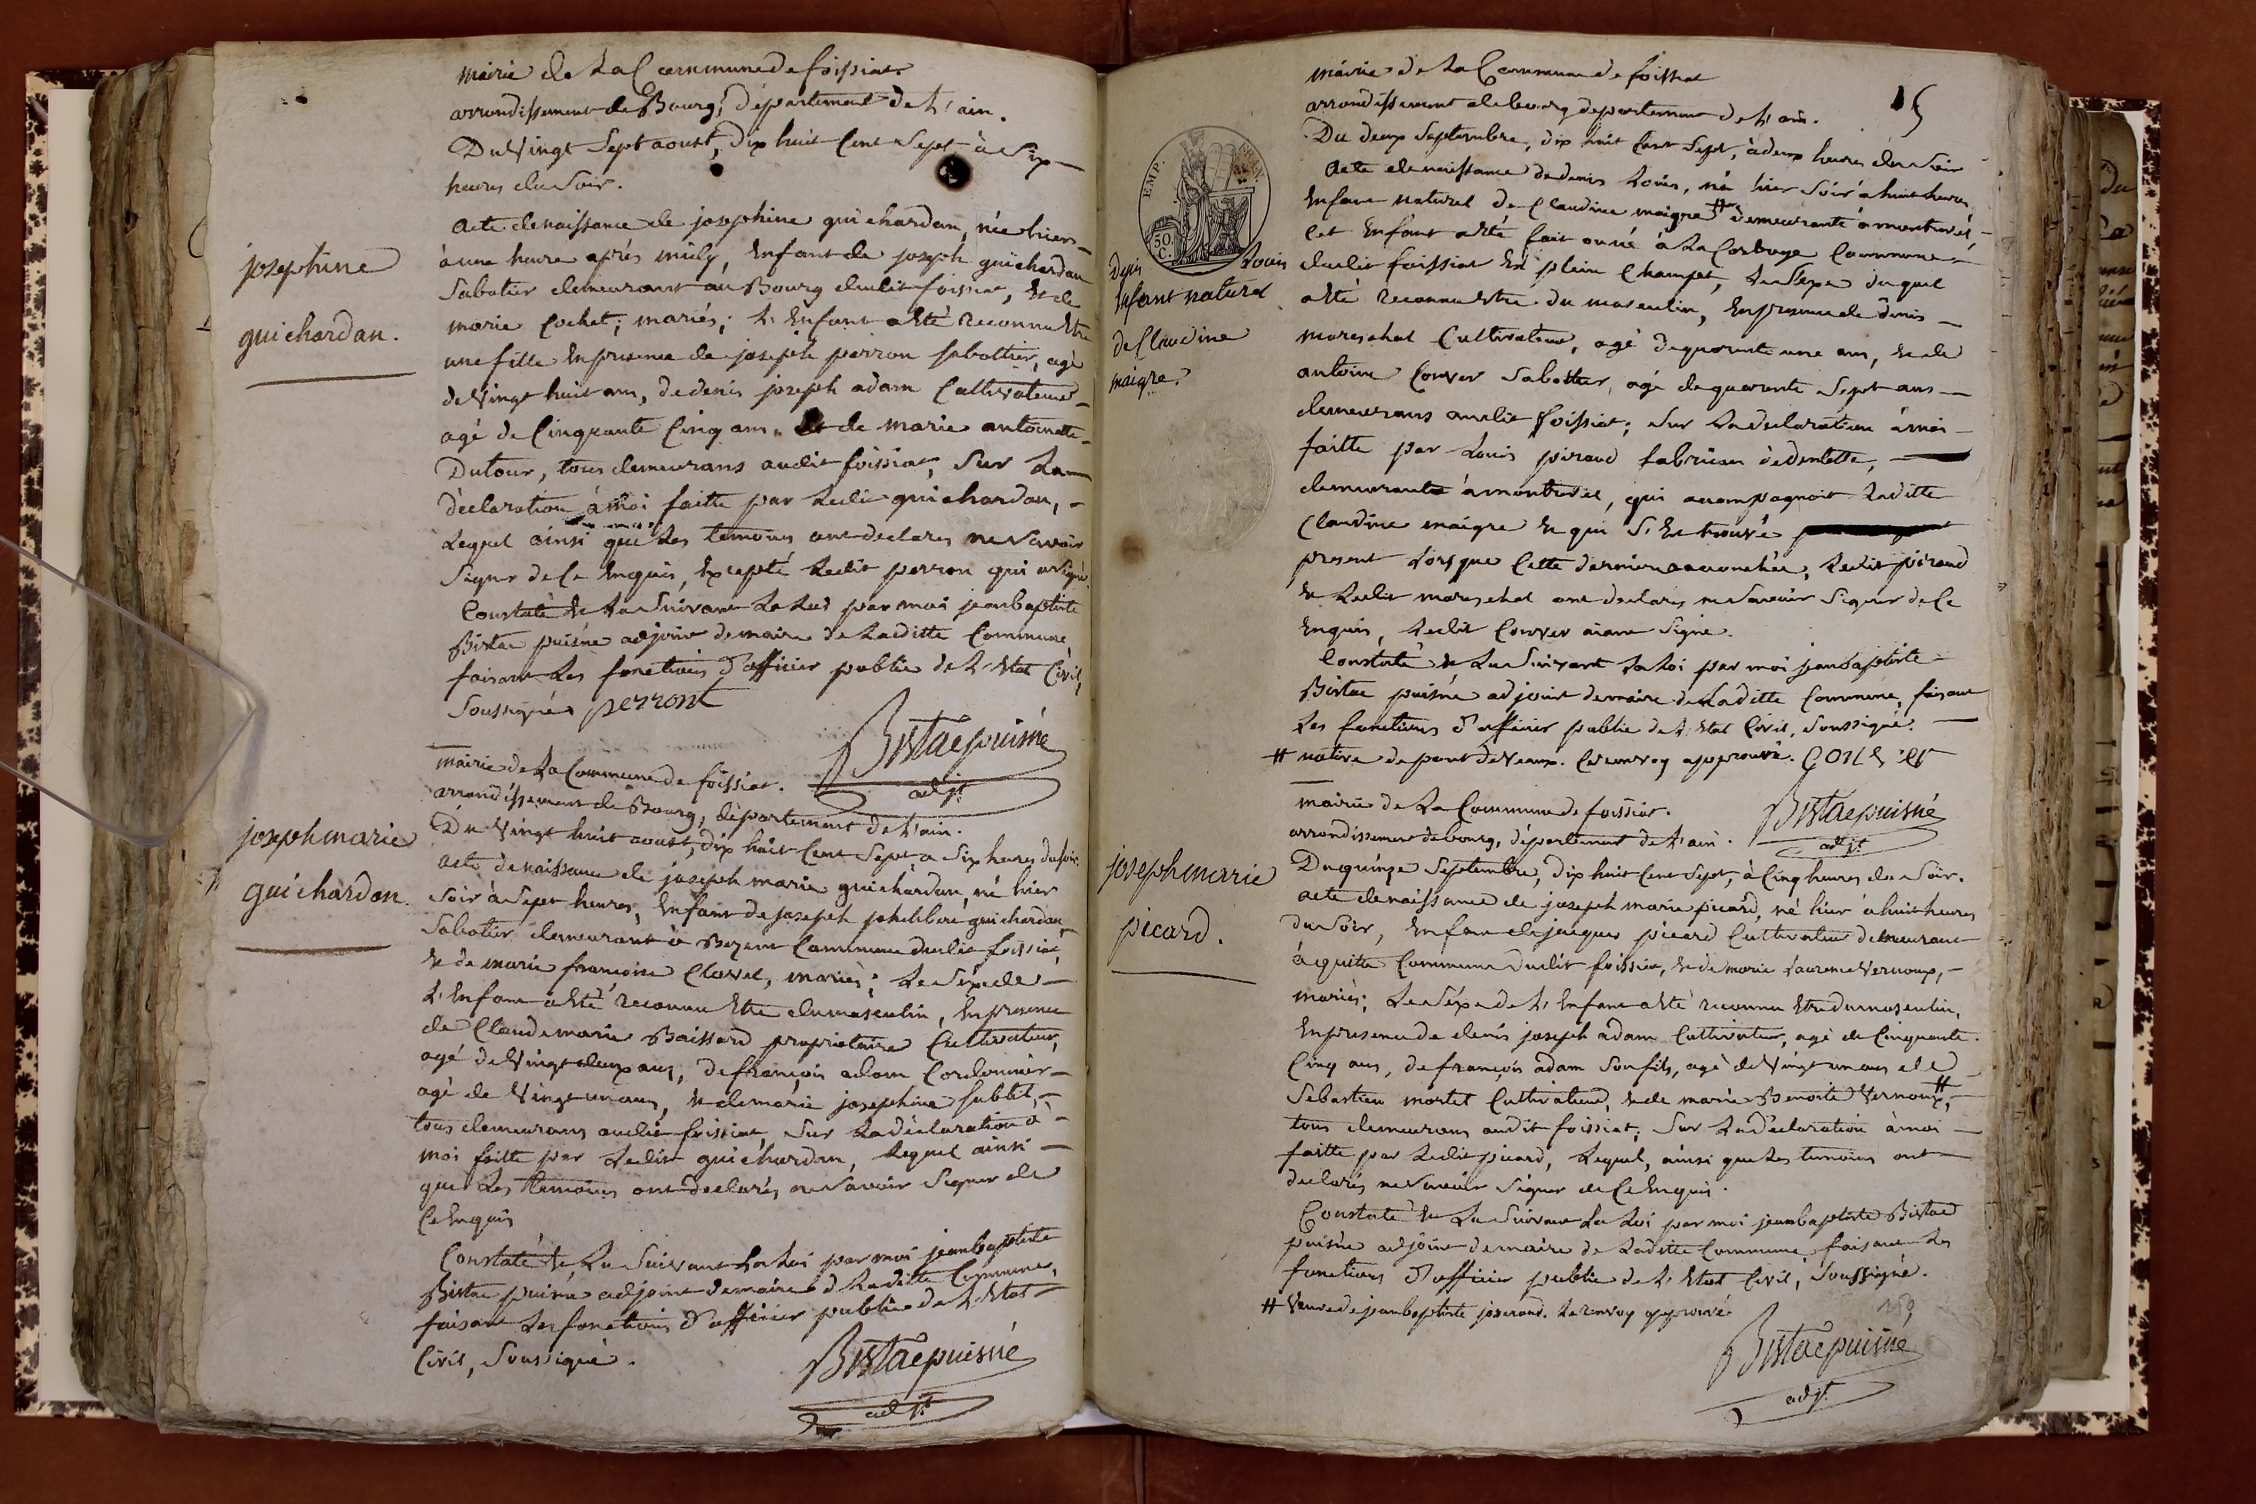 mairie de La Commune de foissiat
arrondissement de Bourg, département de L'ain.
Du Vingt Sept aoust, Dix huit Cent Sept à Six
heures du Soir.
josephine
guichardan.
acte de naissance de josephine guichardan, née hier
à une heure aprés midy, Enfant de joseph guichardan
Sabotier demeurant au Bourg dudit foissiat, et de
marie Cochet; mariés; L'Enfant a Eté reconnu Etre
une fille En presence de joseph perron Sabottier, agé
de Vingt huit ans, de denis joseph adam Cultivateur
agé de Cinquante Cinq ans, et de marie antoinette
Dutour, tous demeurans audit foissiat, Sur La
déclaration à moi faitte par Ledit guichardan,
Lequel ainsi que Les temoins ont declarés ne Savoir
Signer de Ce Enquis, Excepté Ledit perron qui a signé.
Constaté et Lu Suivant La Loi par moi jean baptiste
Bistac puisné adjoint de maire de Laditte Commune
faisant Les fonctions d'officier public de L'Etat Civil,
Soussigné perront
Bistac puisné
adjt.
mairie de La Commune de foissiat.
arrondissement de Bourg, département de L'ain.
Du Vingt huit aoust, dix huit Cent Sept a Six heures du soir
joseph marie
guichardan.
acte de naissance de joseph marie guichardan, né hier
Soir à Sept heures, Enfant de joseph philibert guichardan
Sabotier demeurant à Bezent Commune dudit foissiat,
et de marie françoise Clavel, mariés; Le Séxe de
L'Enfant a Eté reconnu Etre du masculin, En presence
de Claude marie Baissard proprietaire Cultivateur,
agé de Vingt deux ans, de françois adam Cordonnier
agé de Vingt un ans, et de marie josephine Sublet,
tous demeurans audit foissiat, Sur La déclaration à
moi faitte par Ledit guichardan, Lequel ainsi
que Les temoins ont declarés ne Savoir Signer de
Ce Enquis
Constaté et Lu Suivant La Loi par moi jean baptiste
Bistac puisné adjoint de maire de Laditte Commune,
faisant Les fonctions d'officier public de L'Etat
Civil, Soussigné.
Bistac puisné
adjt.
15
mairie de La Commune de foissiat
arrondissement de bourg departement de L'ain.
Du deux Septembre, dix huit Cent Sept, à deux heures du Soir
EMP.
50.
C.
Denis Louis
Enfant naturel
de Claudine
maigre.
Acte de naissance de denis Louis, né hier Soir à huit heures
Enfant naturel de Claudine maigre # demeurante à montrevel
Cet Enfant a Eté fait au né à La Commune
dudit foissiat En plein Champet, Le Sexe duquel
a Eté reconnu Etre du masculin, En presence de denis
mareschal Cultivateur, agé de quarente une ans, et de
antoine Sabottier, agé de quarente Sept ans
demeurans audit foissiat; Sur La declaration à moi
faitte par Louis piraud fabrican de dentelle,
demeurante à montrevel, qui accompagnoit Laditte
Claudine maigre et qui S'Est trouvé
present Lorsque Cette derniere a accouchée, Ledit piraud
et Ledit mareschal ont declarés ne Savoir Signer de Ce
Enquis, Ledit aiant Signé.
Constaté et Lu Suivant La Loi par moi jean baptiste
Bistac puisné adjoint de maire de Laditte Commune, faisant
Les fonctions d'officier public de L'Etat Civil, Soussigné.
# native de pont de Veaux. Le renvoy approuvé.
Bistac puisné
adjt.
mairie de La Commune de foissiat.
arrondissement de bourg, département de L'ain.
Du quinze Septembre, Dix huit Cent Sept, à Cinq heures du Soir.
joseph marie
picard.
acte de naissance de joseph marie picard, né hier à huit heures
du Soir, Enfant de jacques picard Cultivateur demeurant
à Commune dudit foissiat, et de marie Laurence Vernoux,
mariés; Le Séxe de L'Enfant a Eté reconnu Etre du masculin,
En presence de denis joseph adam Cultivateur, agé de Cinquante
Cinq ans, de françois adam Son fils, agé de Vingt un ans et de
Sebastien mortel Cultivateur, et de marie Benoite Vernoux, #
tous demeurans audit foissiat; Sur La déclaration à moi
faitte par Ledit picard, Lequel, ainsi que Les temoins ont
declarés ne Savoir Signer de Ce Enquis.
Constaté et Lu Suivant La Loi par moi jean baptiste Bistac
puisné adjoint de maire de Laditte Commune faisant Les
fonctions d'officier public de L'Etat Civil, Soussigné.
# Veuve de jean baptiste joserand. Le renvoy approuvé.
Bistac puisné
adjt.